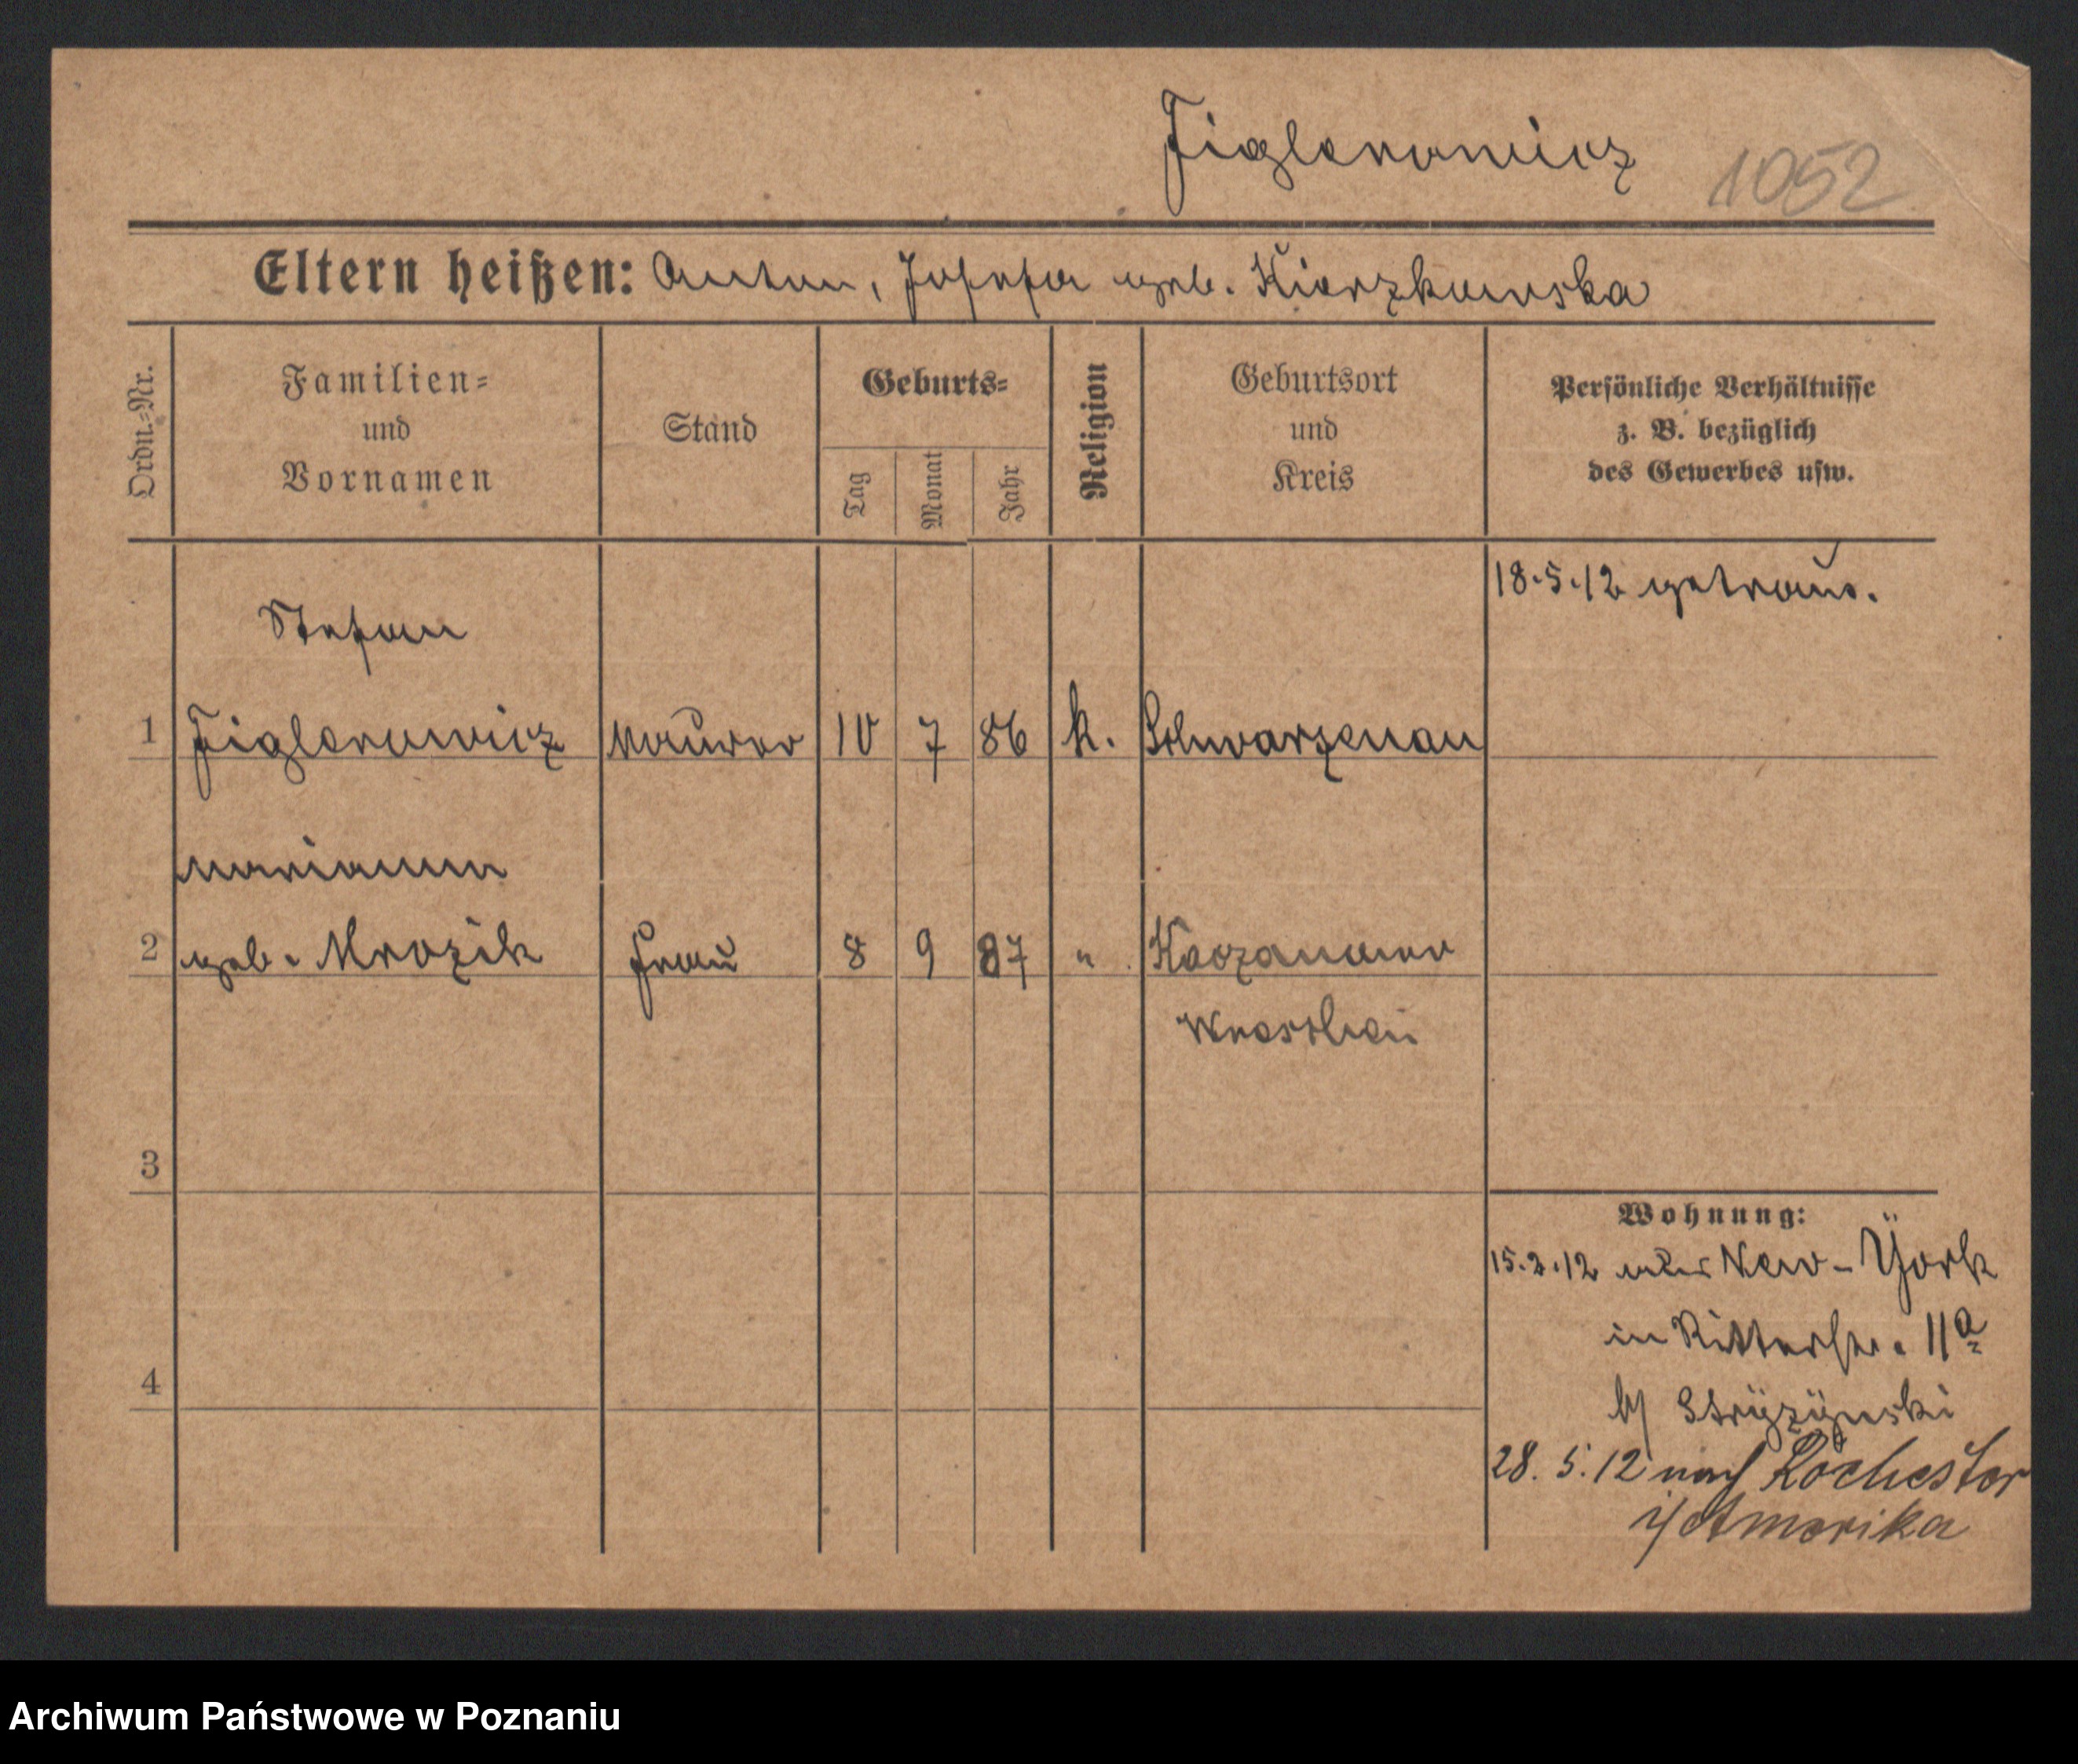 Figlerowicz 1052
Eltern heißen: Anton, Josefa geb. Kierzkowska
Ordn.-Nr.
Familien-
und
Vornamen
Stand
Geburts-
Tag
Monat
Jahr
Religion
Geburtsort
und
Kreis
Persönliche Verhältnisse
z. B. bezüglich
des Gewerbes usw.
18.5.12 getraut.
Stefan
1 Figlerowicz Maurer 10 7 86 k. Schwarzenau
Marianna
2 geb. Mrozik Frau 8 9 87 " Kaczanowo
Wreschen
3
Wohnung:
15.2.12 aus New-York
in Ritterstr. 11a
4
b/ Stryzynski
28.5.12 nach Rochester
i/Amerika
Archiwum Państwowe w Poznaniu